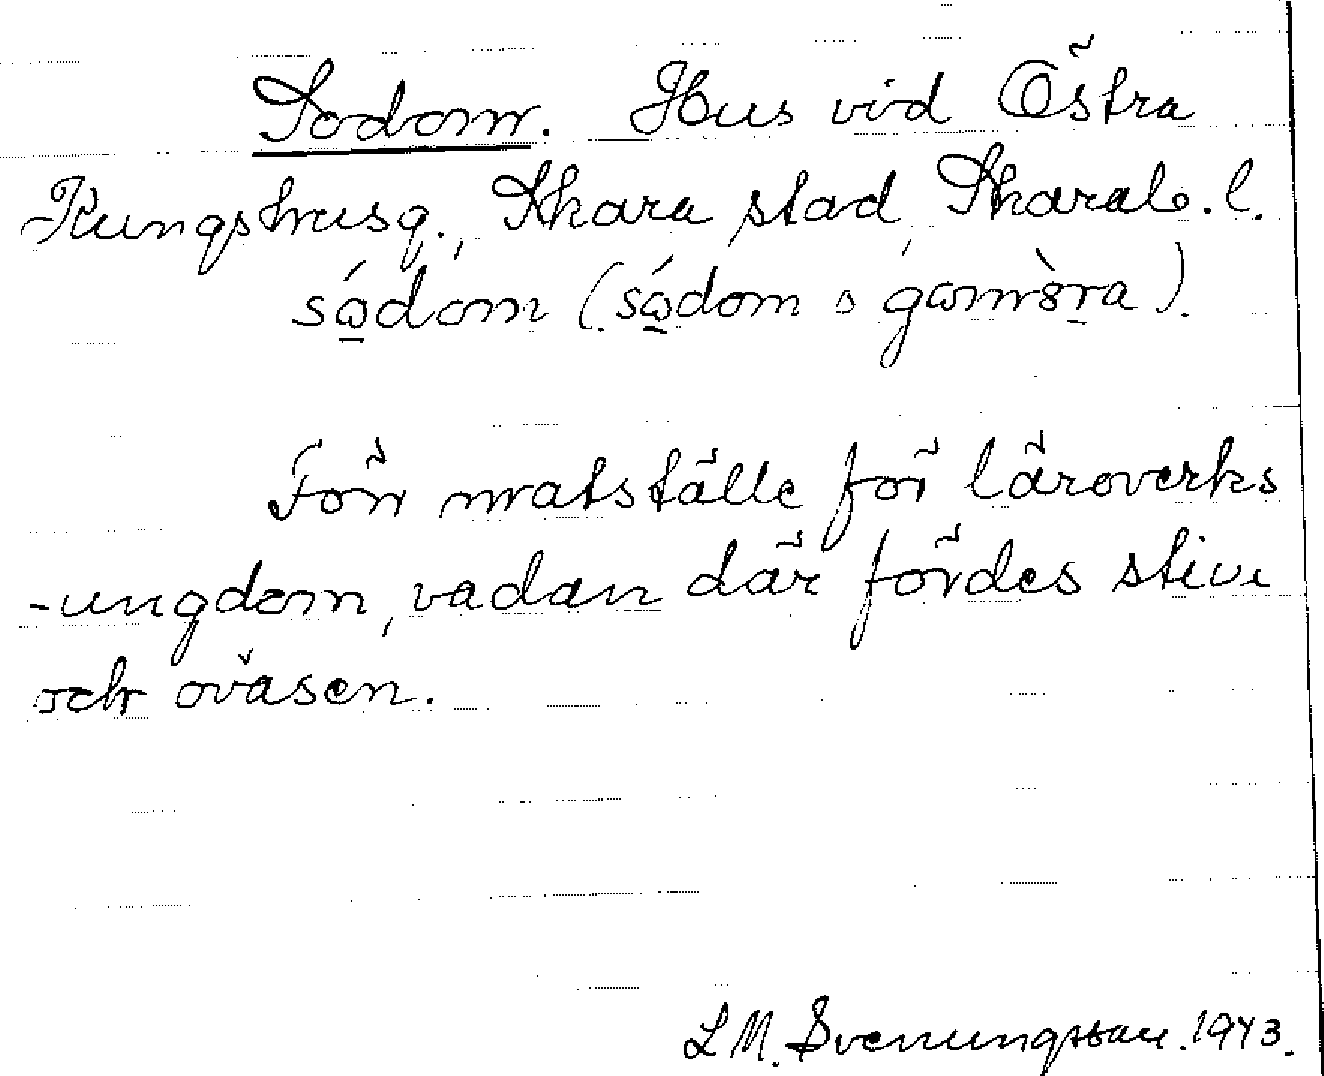 Sodom. Hus vid Östra
Kungshusg., Skara stad, Skarab. l.
sódom (sódom o gomòra).
Förr matställe för läroverks
-ungdom, vadan där fördes stim
och oväsen.
L M. Svenungsson. 1943.